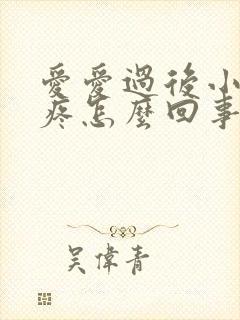 愛愛過後小
疼怎麼回事
吴偉青